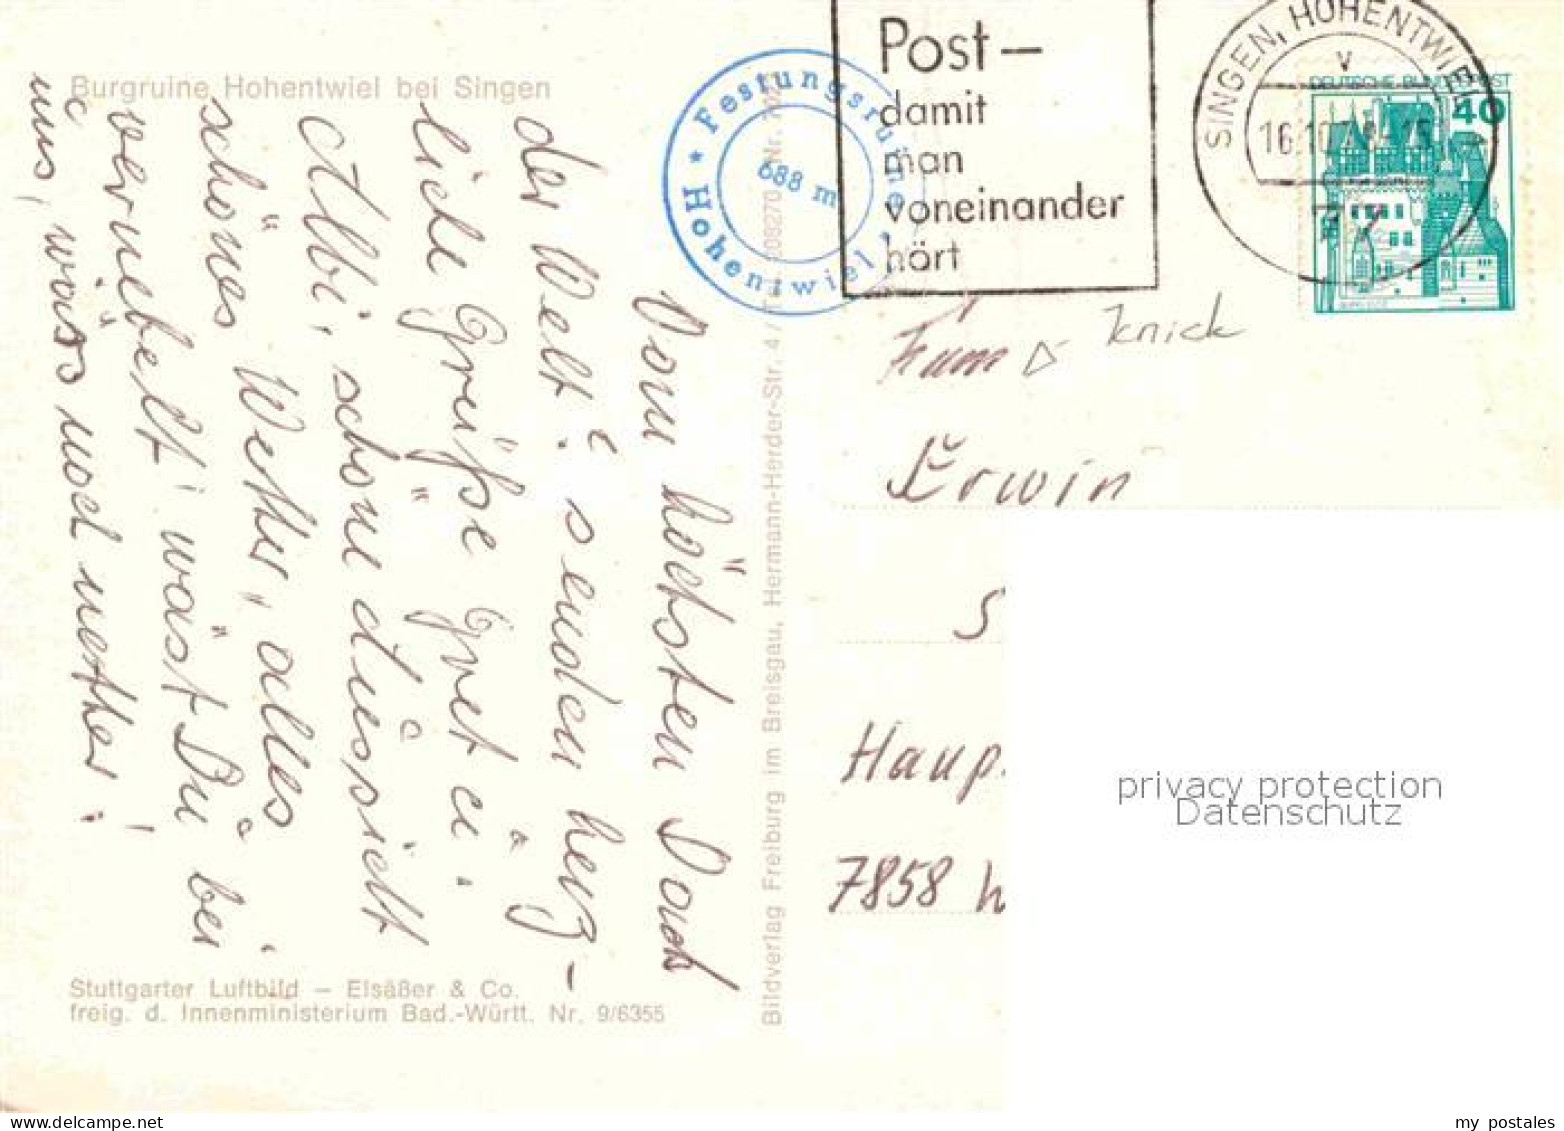 Burgruine Hohentwiel bei Singen
Vom höchsten Dach
der Welt senden herz-
liche Grüße Gret u.
Albi, schöne Aussicht
schönes Wetter, alles
vernebelt! wäst Du bei
uns, wäss noch netter!
Stuttgarter Luftbild – Elsäßer & Co.
freig. d. Innenministerium Bad.-Württ. Nr. 9/6355
Bildverlag Freiburg im Breisgau, Hermann-Herder-Str. 4 /
208270 Nr.
* Festungsruine *
Hohentwiel
688 m
Post –
damit
man
voneinander
hört
SINGEN, HOHENTWIEL
v
16.10.
77
DEUTSCHE BUNDESPOST
40
Knick
Fam
Erwin
S
Haup
7858 W
privacy protection
Datenschutz
my postales